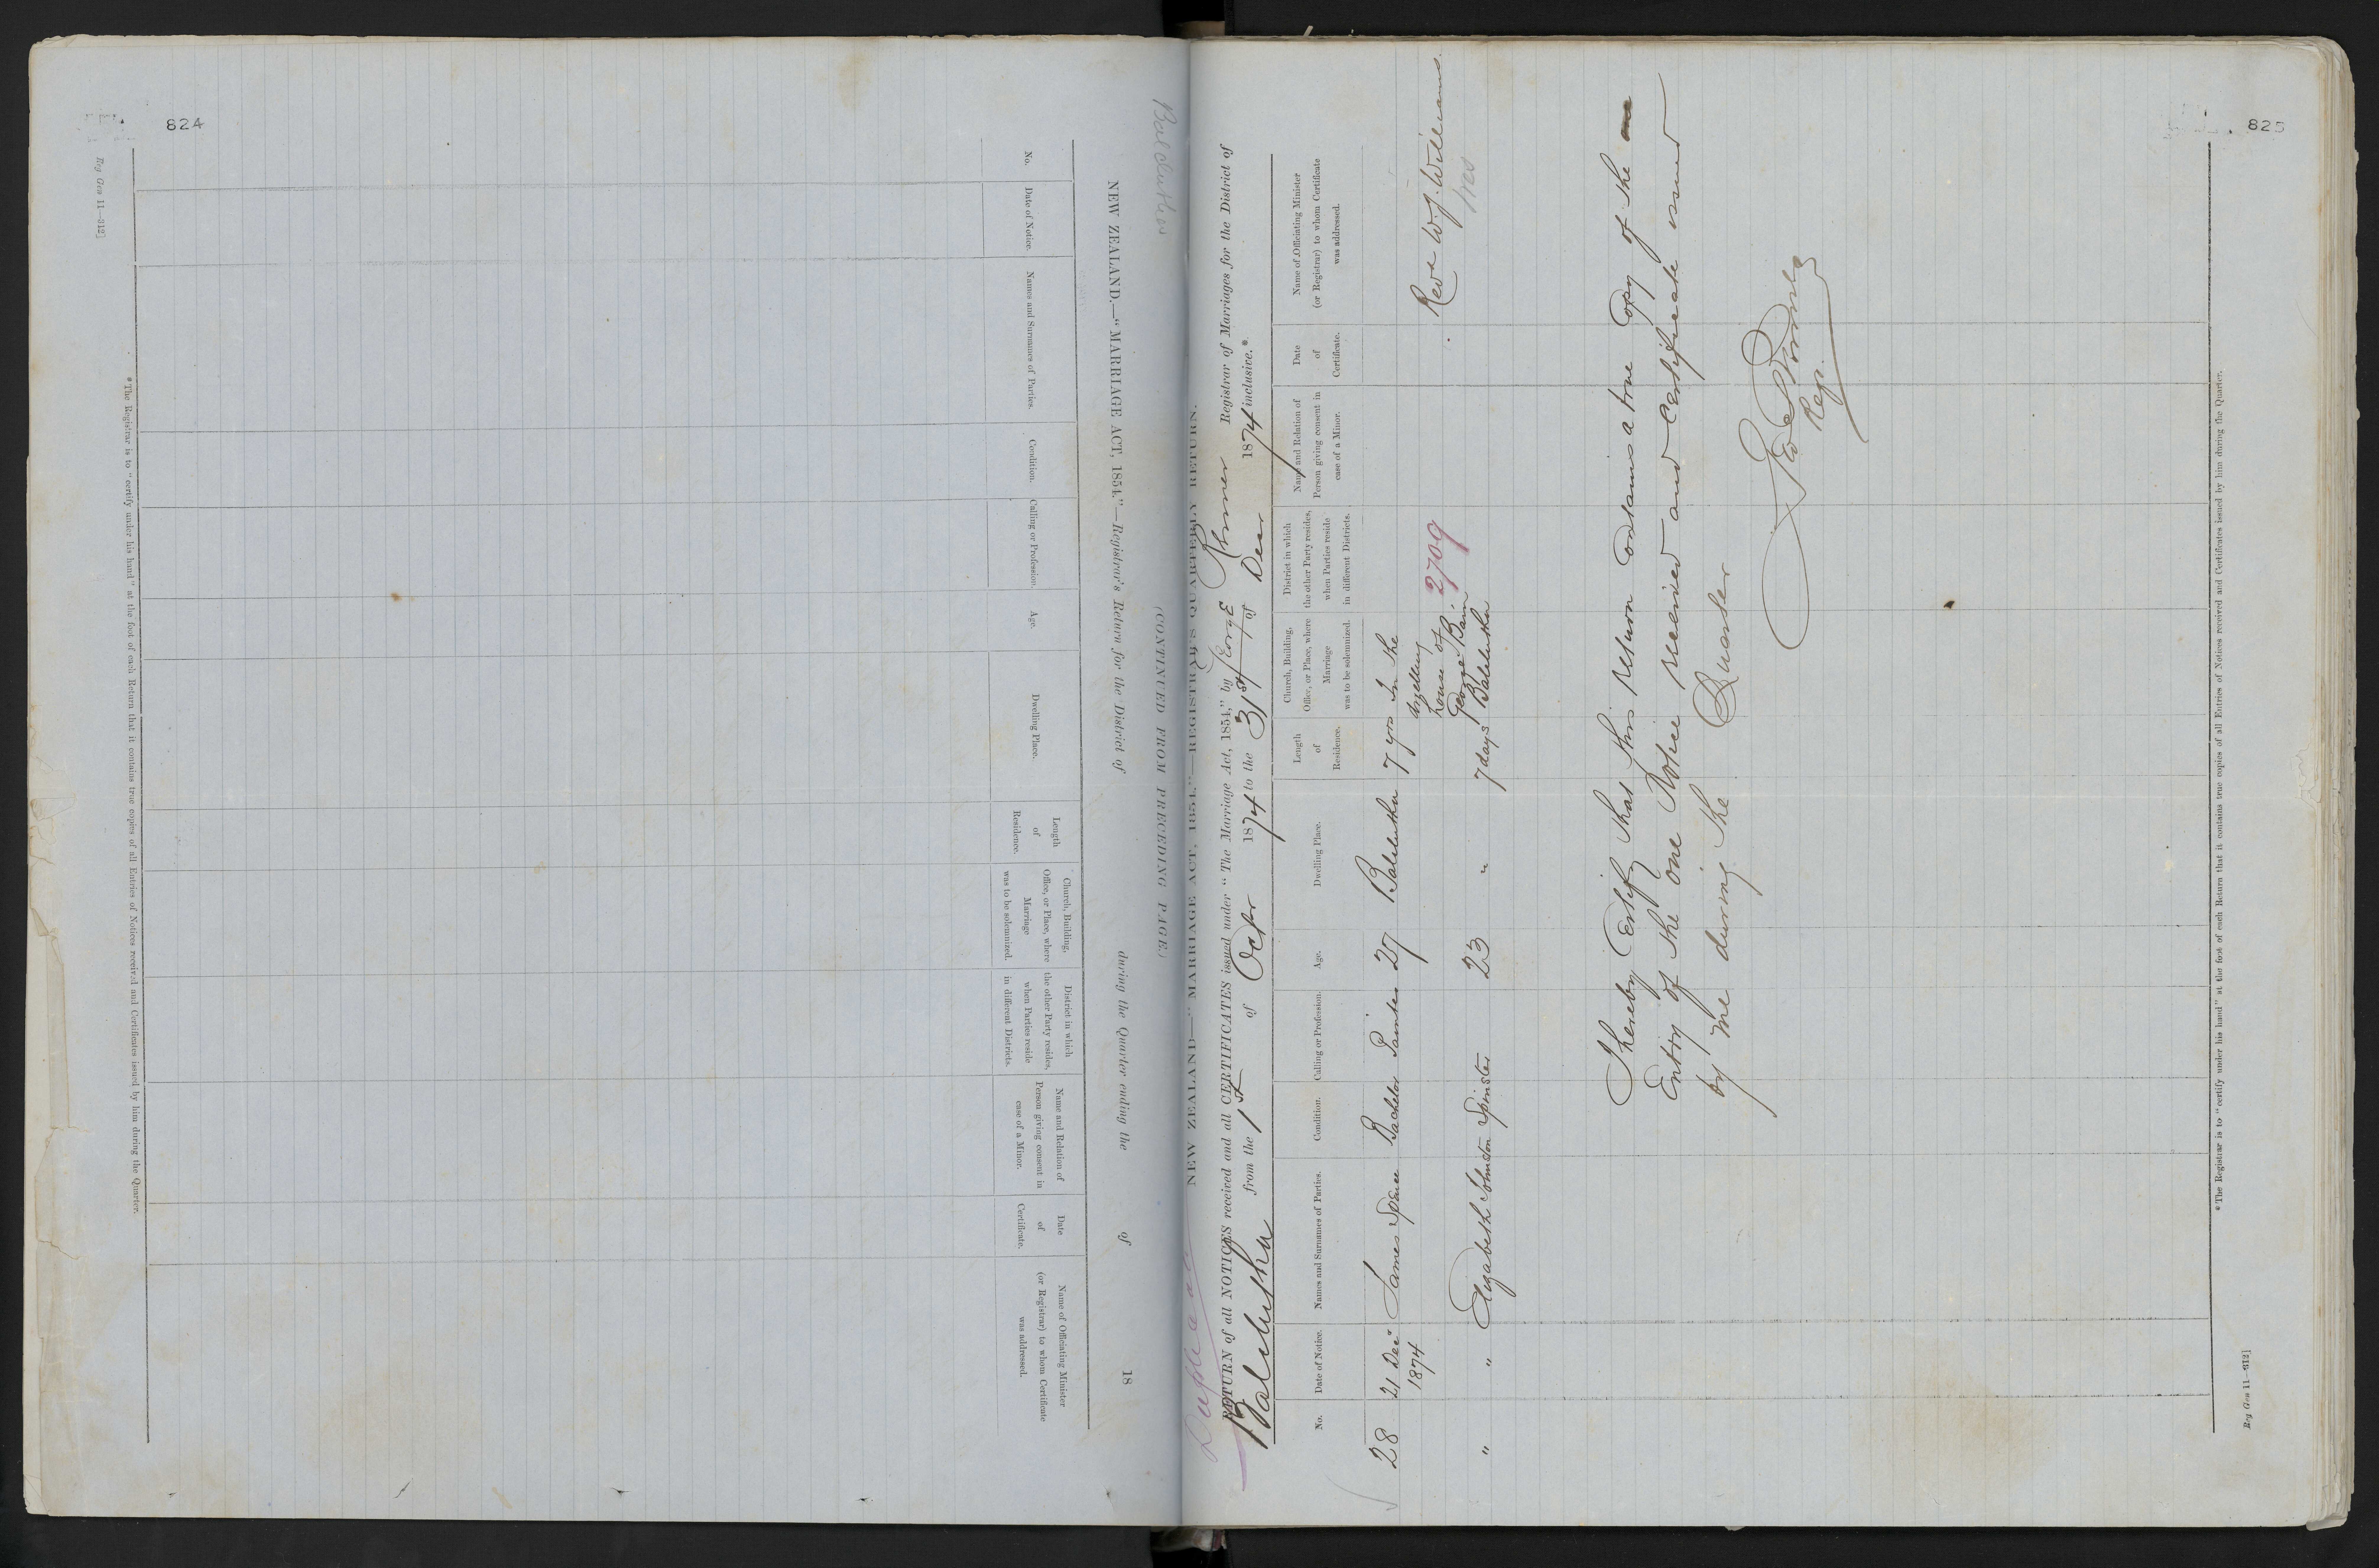 824
Reg Gen 11—312]
Balclutha
NEW ZEALAND.—"MARRIAGE ACT, 1854."—Registrar's Return for the District of during the Quarter ending the of 18
(CONTINUED FROM PRECEDING PAGE.)
No.
Date of Notice.
Names and Surnames of Parties.
Condition.
Calling or Profession.
Age.
Dwelling Place.
Length
of
Residence.
Church, Building,
Office, or Place, where
Marriage
was to be solemnized.
District in which
the other Party resides,
when Parties reside
in different Districts.
Name and Relation of
Person giving consent in
case of a Minor.
Date
of
Certificate.
Name of Officiating Minister
(or Registrar) to whom Certificate
was addressed.
* The Registrar is to "certify under his hand" at the foot of each Return that it contains true copies of all Entries of Notices received and Certificates issued by him during the Quarter.
823
Duplicate
NEW ZEALAND—"MARRIAGE ACT, 1854."—REGISTRAR'S QUARTERLY RETURN.
RETURN of all NOTICES received and all CERTIFICATES issued under "The Marriage Act, 1854," by George Registrar of Marriages for the District of
Balclutha from the 1st of Octbr 1874 to the 31st of Decr 1874 inclusive.*
No.
Date of Notice.
Names and Surnames of Parties.
Condition.
Calling or Profession.
Age.
Dwelling Place.
Length
of
Residence.
Church, Building,
Office, or Place, where
Marriage
was to be solemnized.
District in which
the other Party resides,
when Parties reside
in different Districts.
Name and Relation of
Person giving consent in
case of a Minor.
Date
of
Certificate.
Name of Officiating Minister
(or Registrar) to whom Certificate
was addressed.
28 21 Decr James Spence Bachelor Painter 27 Balclutha 7 yrs In the
1874 dwelling
house of 2709 Revd W. J. Williams.
George Bain
" " Elizabeth Johnston Spinster 23 " 7 days Balclutha
I hereby Certify that this return contains a true Copy of the
Entry of the one Notice received and Certificate issued
by me during the Quarter
Reg.
* The Registrar is to "certify under his hand" at the foot of each Return that it contains true copies of all Entries of Notices received and Certificates issued by him during the Quarter.
Reg Gen 11—312]